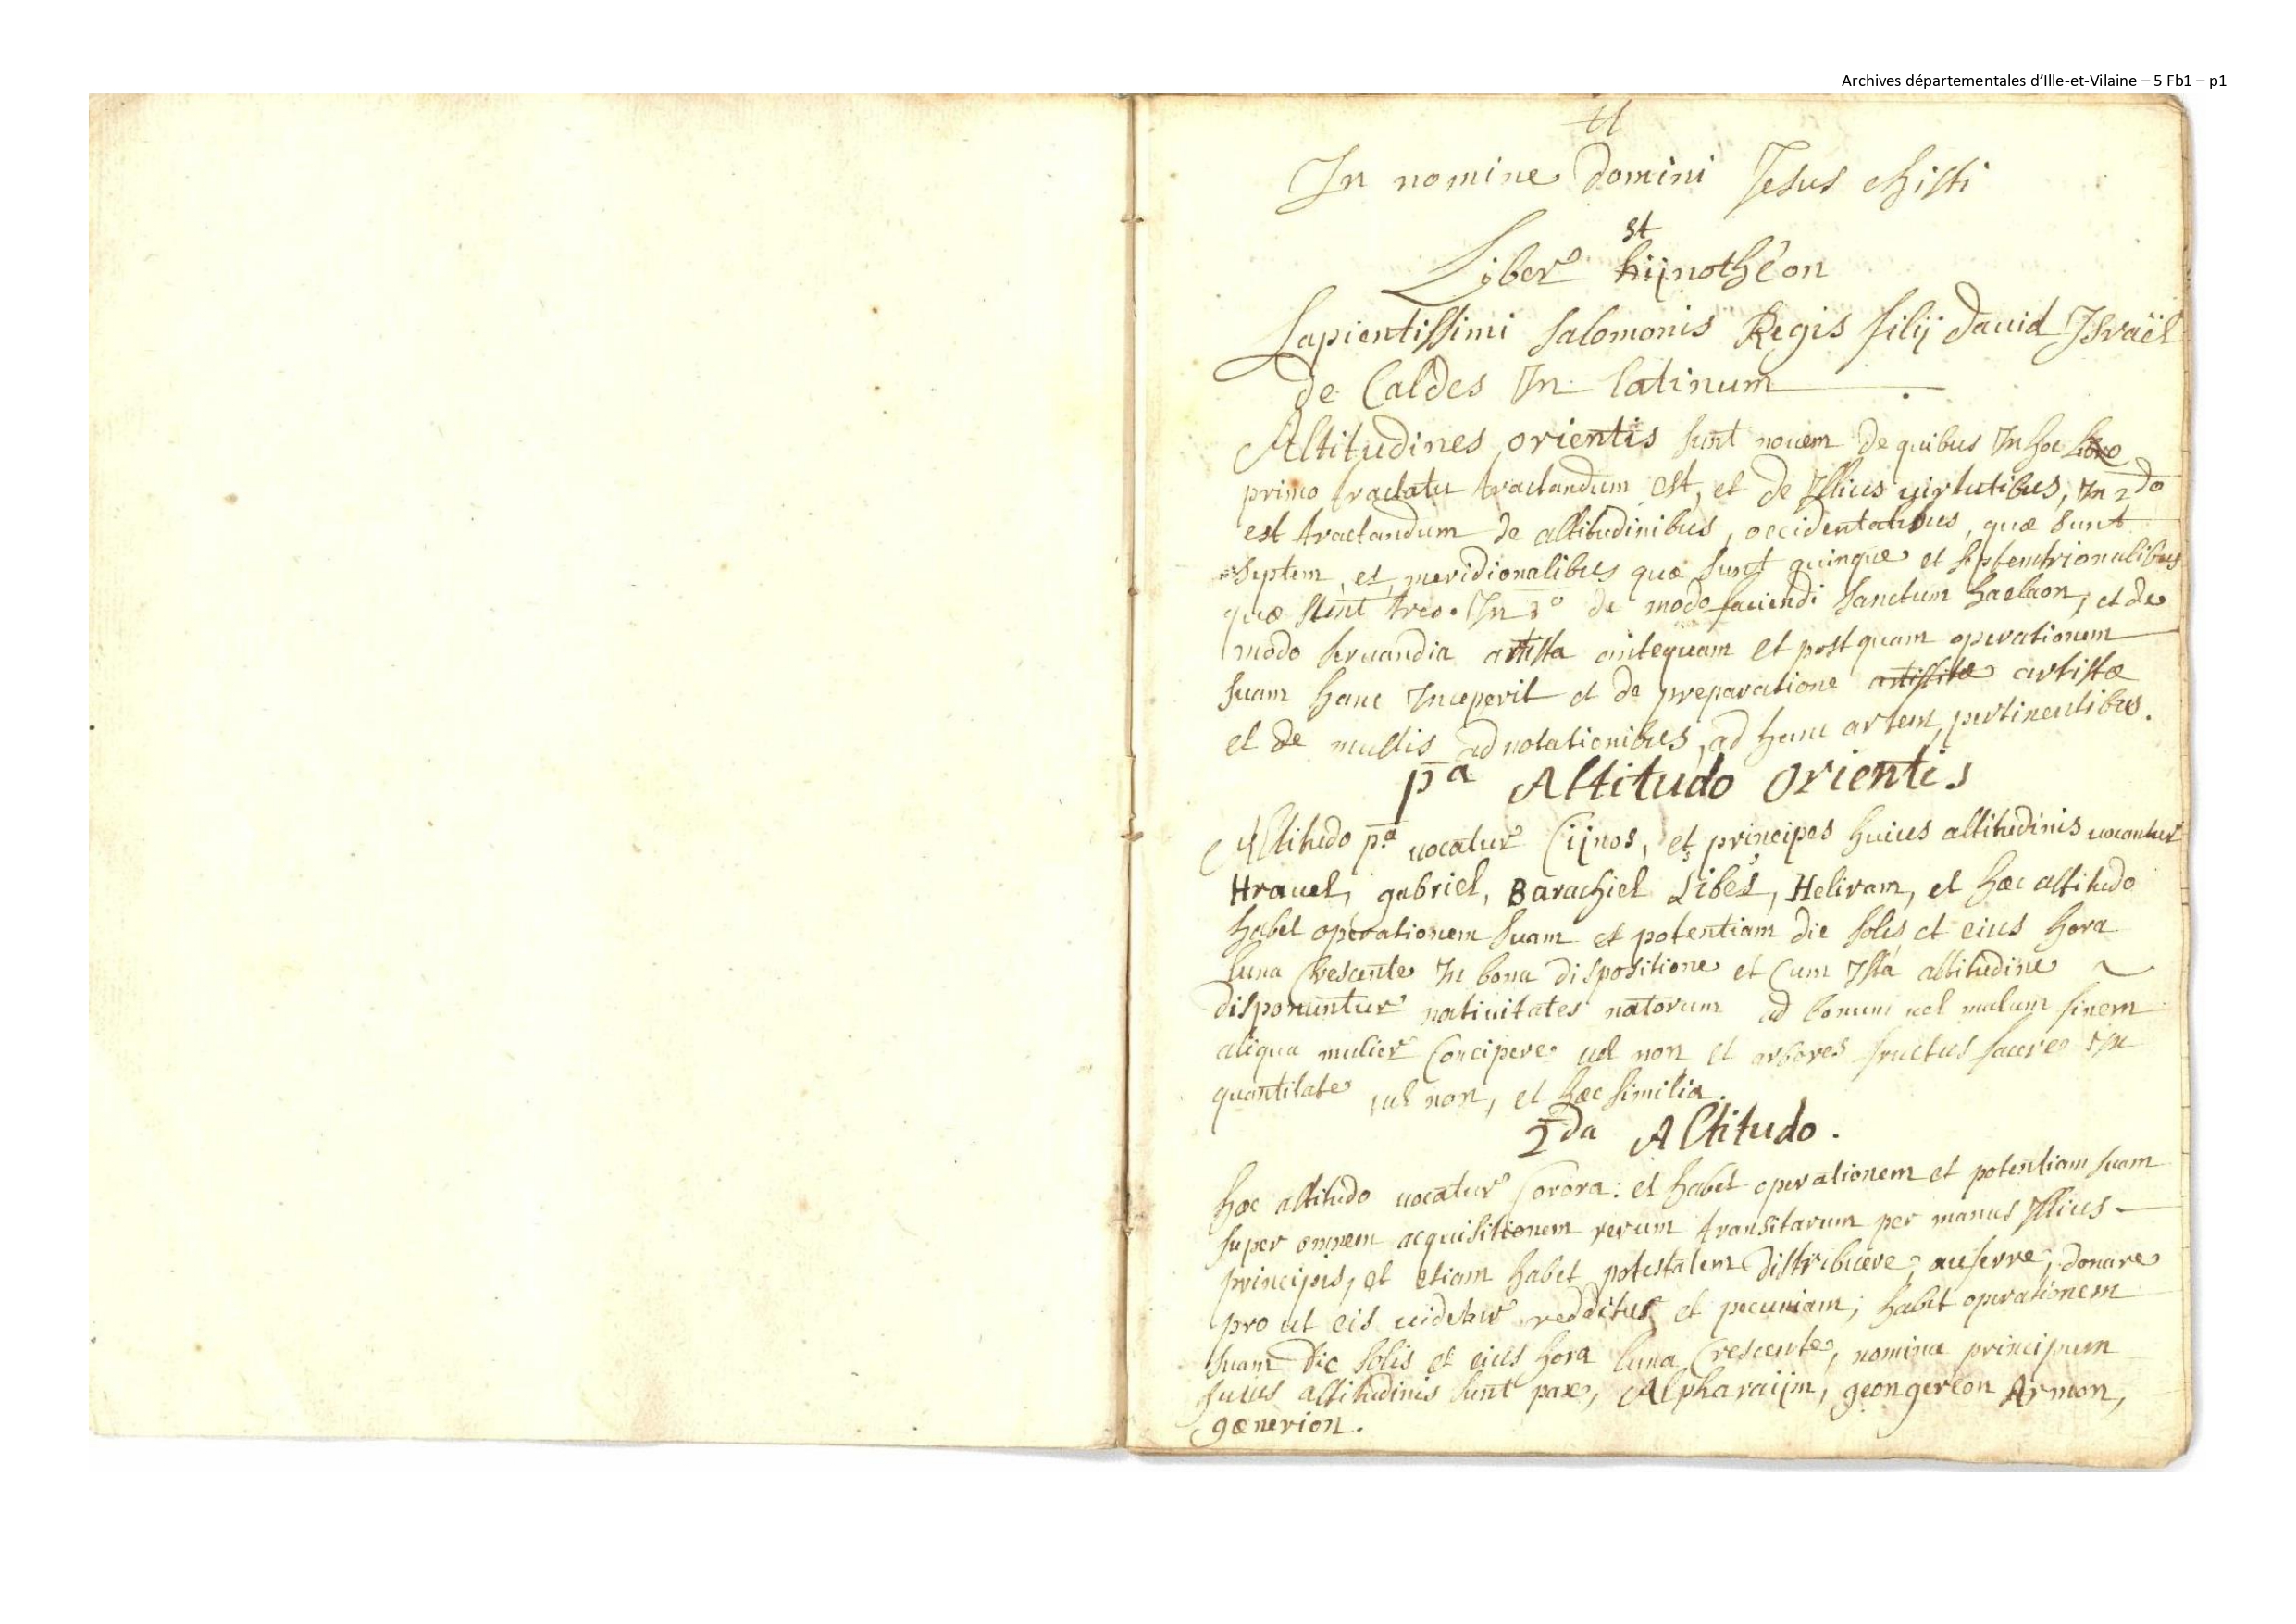 Archives départementales d'Ille-et-Vilaine – 5 Fb1 – p1
In nomine domini Jesus christi
st
Liber hijnothéon
Sapientissimi Salomonis Regis filij dauid Israël
de Caldes In latinum
Altitudines orientis sunt nouem de quibus In hoc libro
primo tractatu tractandum est, et de Illius uirtutibus, In 2do
est tractandum de altitudinibus, occidentalibus, quæ sunt
septem, et meridionalibus quæ sunt quinque et septemtrionalibus
quæ sunt tres. In 3o de modo faciendi sanctum haelaon, et de
modo seruandia artista antequam et postquam operationem
suam hanc Inceperit et de preparatione artistæ
et de multis adnotationibus, ad hanc artem, pertinentibus.
pa Altitudo orientis
Altitudo pa uocatur Cijnos, et principes huius altitudinis uocantur
Hrauel, gabriel, Barachiel Libes, Heliram, et hæc altitudo
habet operationem suam et potentiam die solis et eius hora
luna Crescente In bona dispositione et Cum Ista altitudine
disponuntur natiuitates natorum ad bonum uel malum finem
aliqua mulier Concipere uel non et arbores fructus facere In
quantitate uel non, et hæc similia.
2da Altitudo.
hæc altitudo uocatur Corora: et habet operationem et potentiam suam
super omnem acquisitionem rerum transitarum per manus Illius
principis, et etiam habet potestatem distribuere, auferre, donare
pro ut eis uidetur redditus et pecuniam; habet operationem
suam die solis et eius hora luna Crescente, nomina principum
huius altitudinis sunt pax, Alpharaijm, geongereon Armon,
gænerion.